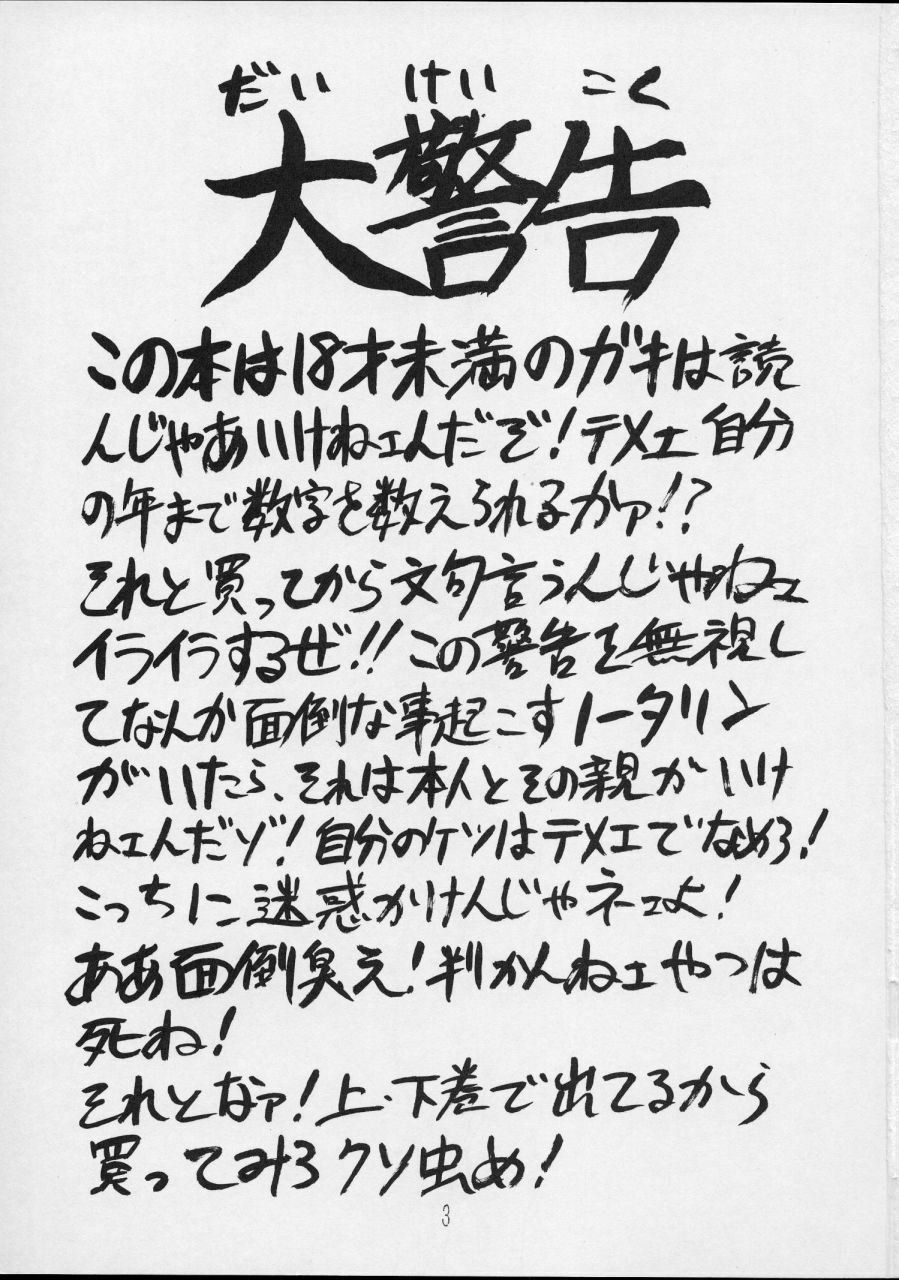 だい けい こく
大警告
この本は18才未満のガキは読
んじゃあいけねェんだぞ!テメェ自分
の年まで数字を数えられるかァ!?
それと買ってから文句言うんじゃねェ
イライラするぜ!!この警告を無視し
てなんか面倒な事起こすノータリン
がいたら、それは本人とその親がいけ
ねェんだゾ!自分のケツはテメェでなめろ!
こっちに迷惑かけんじゃネェよ!
ああ面倒臭え!判かんねェやつは
死ね!
それとなァ!上・下巻で出てるから
買ってみろクソ虫め!
3